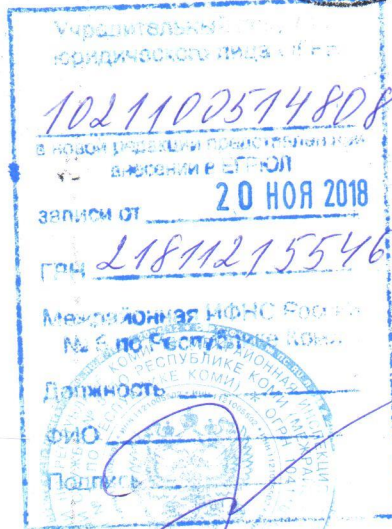 Учредительный
юридического лица ОГРН
1021100514808
в новой редакции представлен при
внесении в ЕГРЮЛ
записи от 20 НОЯ 2018
ГРН 218112155546
Межрайонная ИФНС России
№ 5 по Республике Коми
Должность
ФИО
Подпись